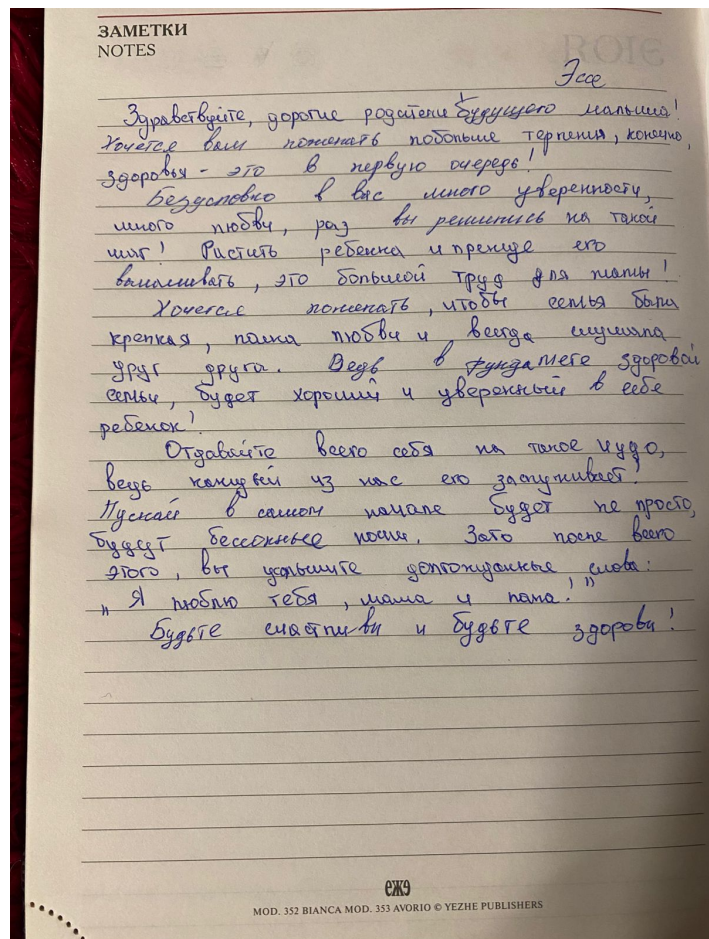 ЗАМЕТКИ
NOTES
Эссе
Здравствуйте, дорогие родители будущего малыша!
Хочется вам пожелать побольше терпения, конечно,
здоровья - это в первую очередь!
Безусловно в вас много уверенности,
много любви, раз вы решились на такой
шаг! Растить ребенка и прежде его
вынашивать, это большой труд для мамы!
Хочется пожелать, чтобы семья была
крепкая, полна любви и всегда слушала
друг друга. Ведь в фундамете здоровой
семьи, будет хороший и уверенный в себе
ребенок!
Отдавайте всего себя на такое чудо,
ведь каждый из нас его заслуживает!
Пускай в самом начале будет не просто,
будут бессонные ночи. Зато после всего
этого, вы услышите долгожданные слова:
„Я люблю тебя, мама и папа!"
Будьте счастливи и будьте здорови!
ежэ
MOD. 352 BIANCA MOD. 353 AVORIO © YEZHE PUBLISHERS